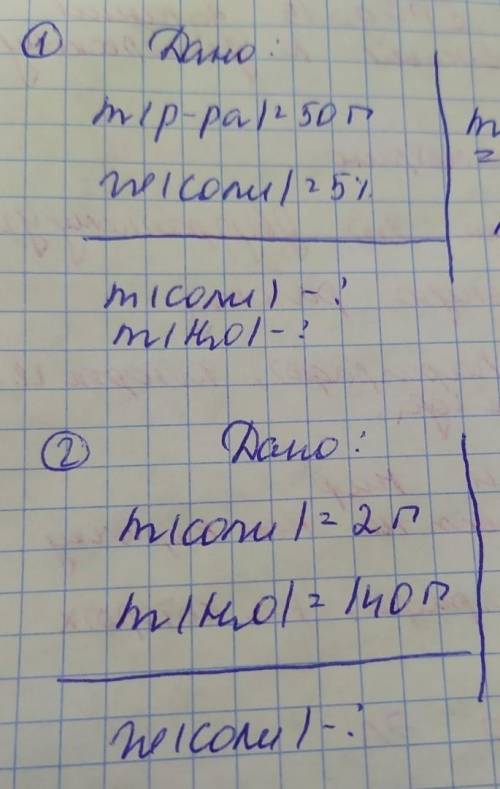 ① Дано:
m(р-ра)=50г
m
=
w(соли)=5%
m(соли)-?
m(H₂O)-?
② Дано:
m(соли)=2г
m(H₂O)=140г
w(соли)-?